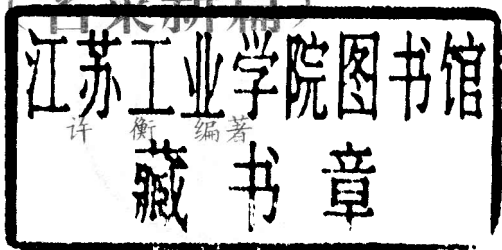 江苏工业学院图书馆
许衡 编著
藏书章